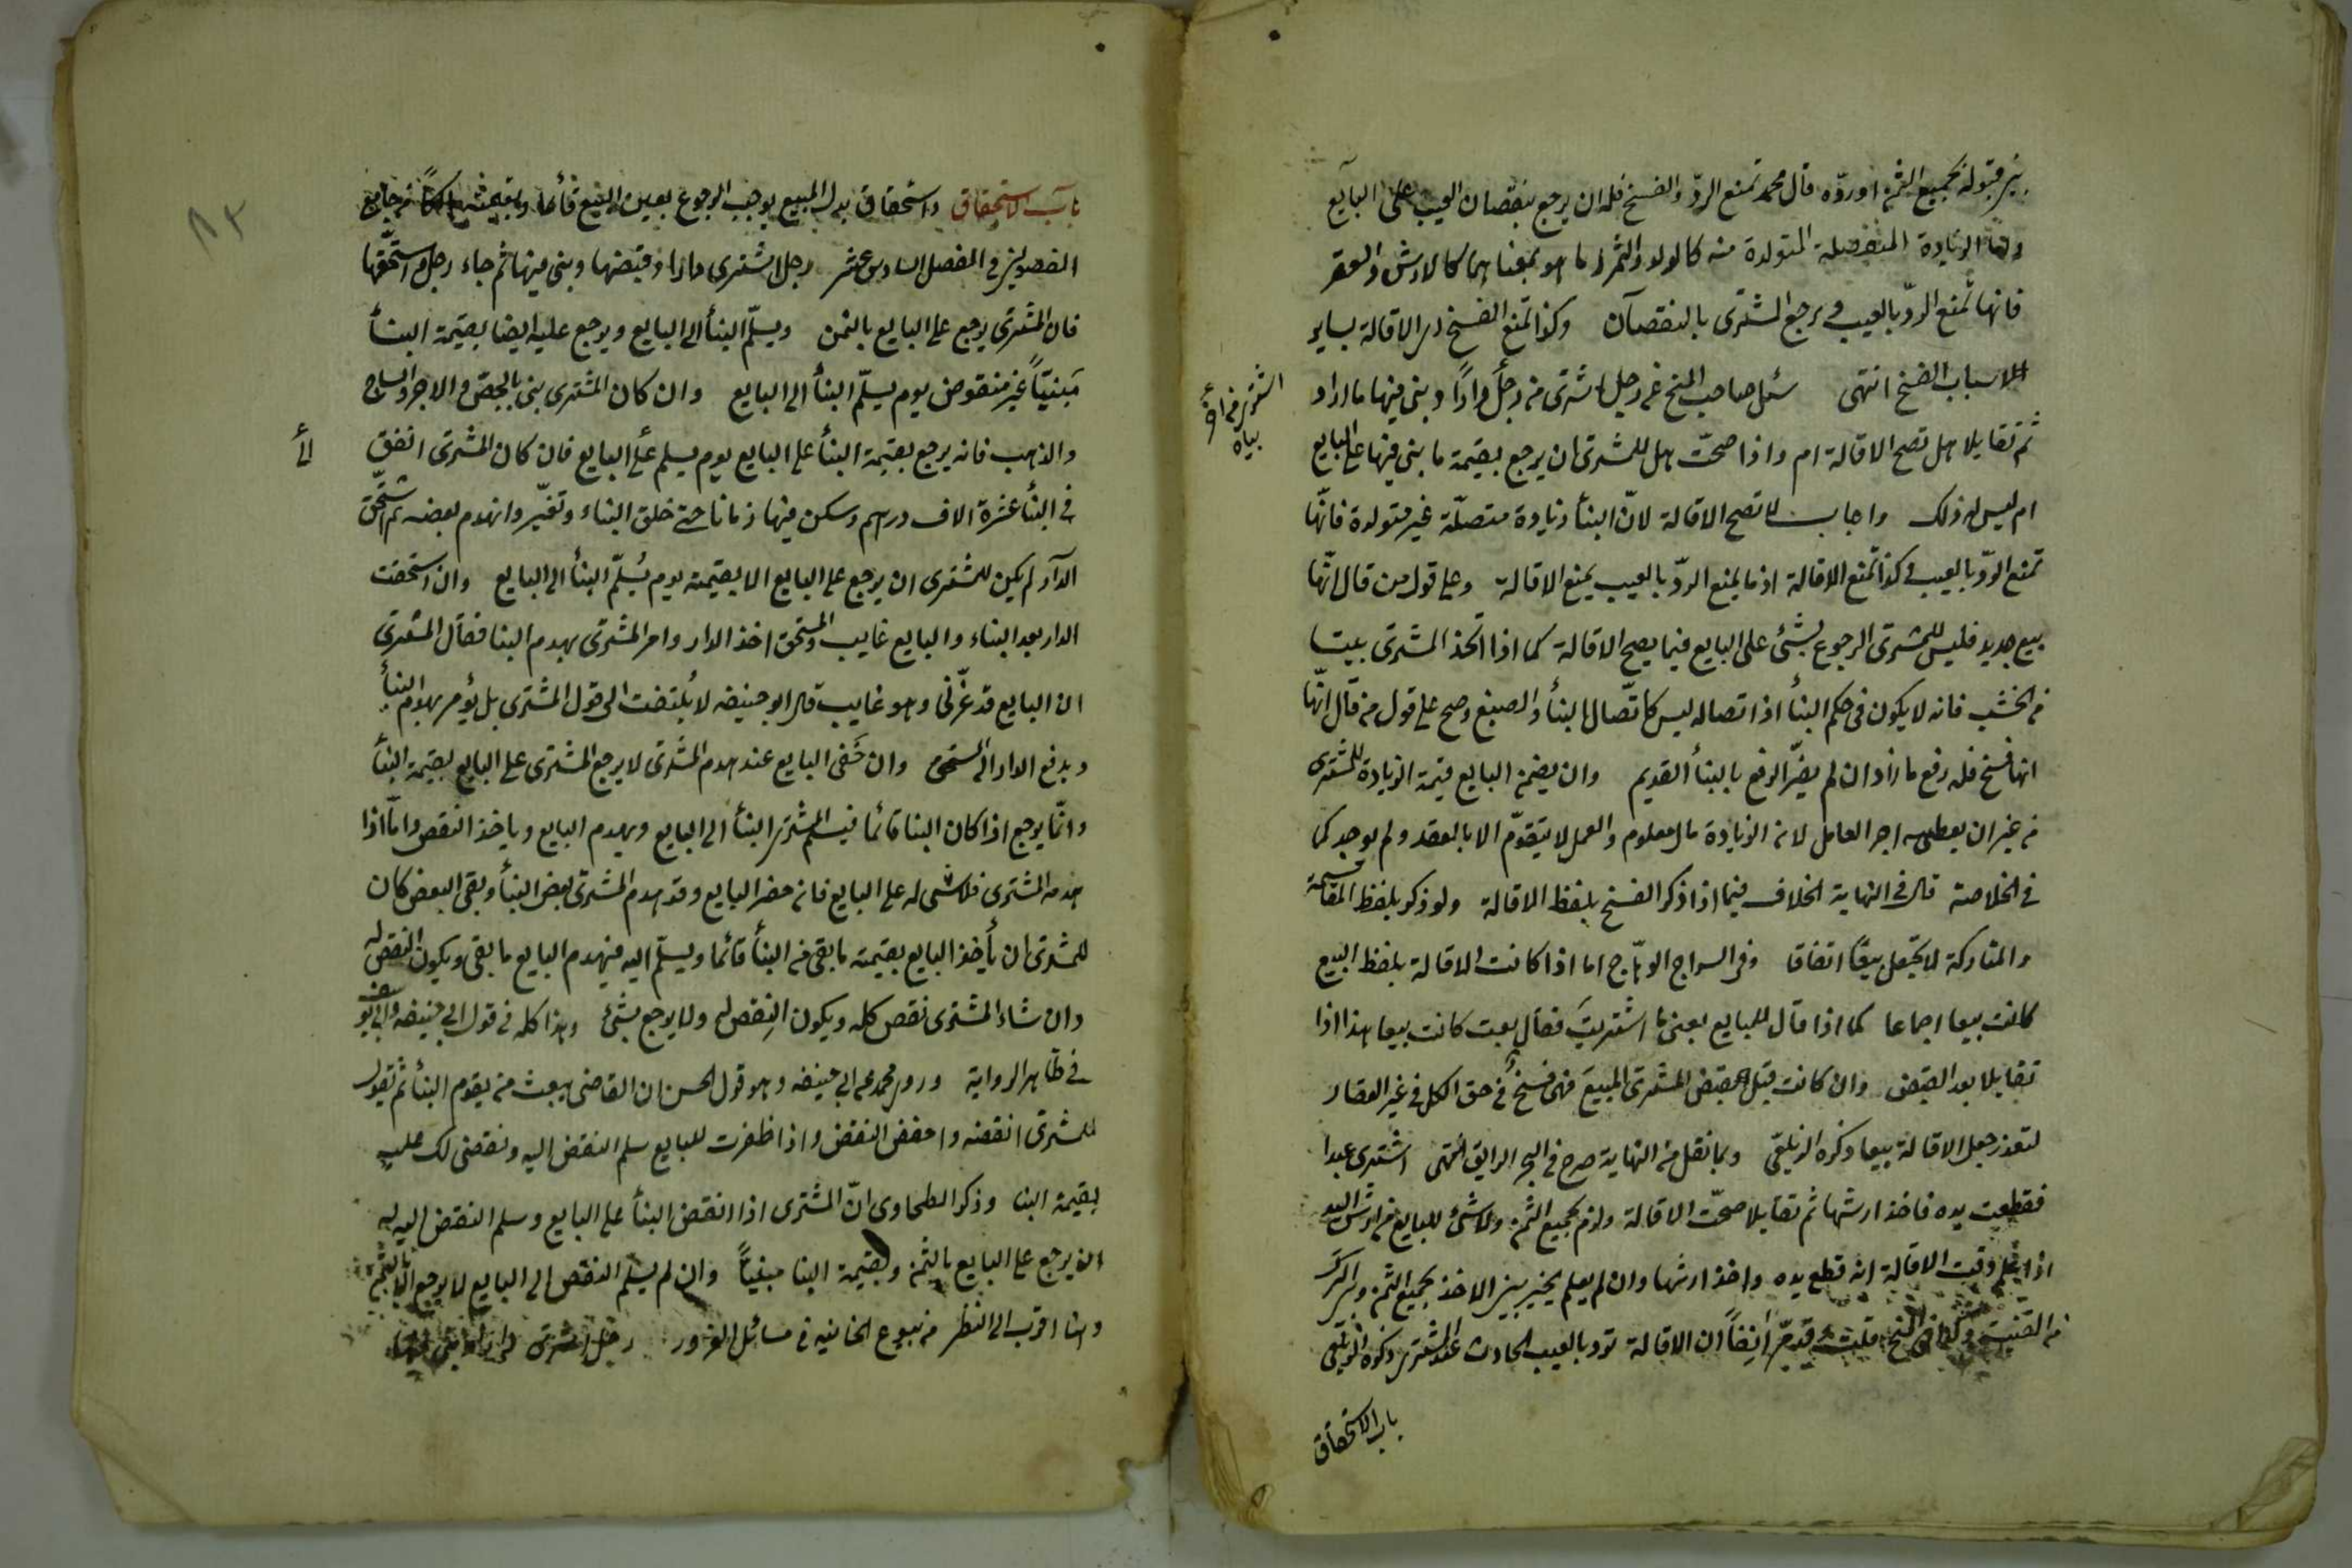 بين قبوله بجميع الثمن او ردّه قال محمد تمنع الردّ والفسخ فله ان يرجع بنقصان العيب على البايع
واما الزيادة المنفصلة المتولدة منه كالولد والثمر او ما هو بمعناهما كالارش والعقر
فانها تمنع الردّ بالعيب ويرجع المشترى بالنقصان وكذا تمنع الفسخ الاقالة بساير
الاسباب الفسخ انتهى سئل صاحب المنح عن رجل اشترى من رجل دارًا وبنى فيها ما اراد
ثم تقايلا هل تصح الاقالة ام واذا صحّت هل للمشترى ان يرجع بقيمة ما بنى فيها على البايع
ام ليس له ذلك واجاب لا تصح الاقالة لانّ البنأ زيادة متصلّة غير متولدة فانّها
تمنع الردّ بالعيب وكذا تمنع الاقالة اذ ما يمنع الردّ بالعيب يمنع الاقالة وعلى قول من قال انّها
بيع جديد فليس للمشترى الرجوع بشئ على البايع فيما يصح الاقالة كما اذا اتخذ المشترى بيتا
من الخشب فانه لا يكون فى حكم البنأ اذ اتصاله ليس كاتّصال البنأ والصبغ وصح على قول من قال انّها
انها فسخ فله رفع ما زاد ان لم يضرّ الرفع بالبنأ القديم وان يضمن البايع قيمة الزيادة للمشترى
من غير ان يعطيه اجر العامل لان الزيادة مال معلوم والعمل لا يتقوّم الا بالعقد ولم يوجد كما
فى الخلاصة قال فى النهاية الخلاف فيما اذا ذكر الفسخ بلفظ الاقالة ولو ذكر بلفظ المفاسخة
والمتاركة لا يجعل بيعًا اتفاقا وفى السراج الوهّاج اما اذا كانت الاقالة بلفظ البيع
كانت بيعا اجماعا كما اذا قال للبايع بعنى ما اشتريتَ فقال بعت كانت بيعا هذا اذا
تقايلا بعد القبض وان كانت قبل قبض المشترى المبيعَ فهى فسخٌ فى حق الكل فى غير العقار
لتعذر جعل الاقالة بيعا ذكره الزيلعى وبما نقل من النهاية صرح فى البحر الرايق انتهى اشترى عبدا
فقطعت يده فاخذ ارشها ثم تقايلا صحّت الاقالة ولزم بجميع الثمن ولا شئ للبايع من ارش اليد
اذا علم وقت الاقالة انه قطع يده واخذ ارشها وان لم يعلم يخير بين الاخذ بجميع الثمن والترك
من القنية وكذا فى المنح قلت وقد مرّ ايضًا ان الاقالة ترد بالعيب الحادث عند المشترى ذكره الزيلعى
باب الاستحقاق
باب الاستحقاق واستحقاق بدل المبيع يوجب الرجوع بعين المبيع قائما وبقيمته هالكا من جامع
الفصولين فى الفصل السادس عشر رجل اشترى دارا وقبضها وبنى فيها ثم جاء رجل واستحقّها
فان المشترى يرجع على البايع بالثمن ويسلّم البنأ الى البايع ويرجع عليه ايضا بقيمة البنأ
مَبنيّاً غير منقوض يوم يسلّم البنأ الى البايع وان كان المشترى بنى بالجصّ والاجر والساج
والذهب فانه يرجع بقيمة البنأ على البايع يوم يسلم على البايع فان كان المشترى انفق
فى البنأ عشرة الاف درهم وسكن فيها زمانا حتى خلق البناء وتغيّر وانهدم بعضه ثم استحق
الدار لم يكن للمشترى ان يرجع على البايع الا بقيمته يوم يُسلّم البنأ الى البايع وان استحقت
الدار بعد البناء والبايع غايب والمستحق اخذ الدار وامر المشترى بهدم البنا فقال المشترى
ان البايع قد غرّنى وهو غايب قال ابو حنيفه لا يُلتفت الى قول المشترى بل يؤمر بهدم البنأ
ويدفع الدار الى المستحق وان حَضَر البايع عند هدم المشترى لا يرجع المشترى على البايع بقيمة البنأ
وانّما يرجع اذا كان البنا قائما فيسلم المشترى البنأ الى البايع ويهدم البايع وياخذ النقض وامّا اذا
هدمه المشترى فلا شى له على البايع فان حضر البايع وقد هدم المشترى بعض البنأ وبقى البعض كان
للمشترى ان يأخذ البايع بقيمة ما بقى من البنأ قائما ويسلّم اليه فيهدم البايع ما بقى ويكون النقض له
وان شاء المشترى نقض كله ويكون النقض له ولا يرجع بشئ وهذا كله فى قول ابى حنيفه وابى يوسف
فى ظاهر الرواية وروى محمد عن ابى حنيفه وهو قول الحسن ان القاضى يبعث من يقوم البنأ ثم يقول
للمشترى انقضه واحفظ النقض واذا ظفرت للبايع سلم النقض اليه ونقضى لك عليه
بقيمة البنا وذكر الطحاوى انّ المشترى اذا انقض البنأ على البايع وسلم النقض اليه له
ان يرجع على البايع بالثمن وبقيمة البنا مبنياً وان لم يسلم النقض الى البايع لا يرجع الا بالثمن
وهذا اقرب الى النظر من بيوع الخانيه فى مسائل الغرور رجل اشترى